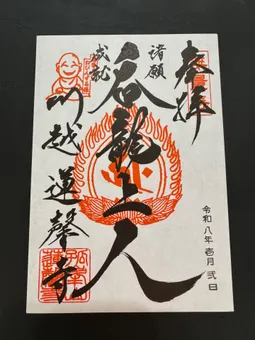 奉拝
諸願
成就
呑龍上人
川越蓮馨寺
令和八年壱月弐日